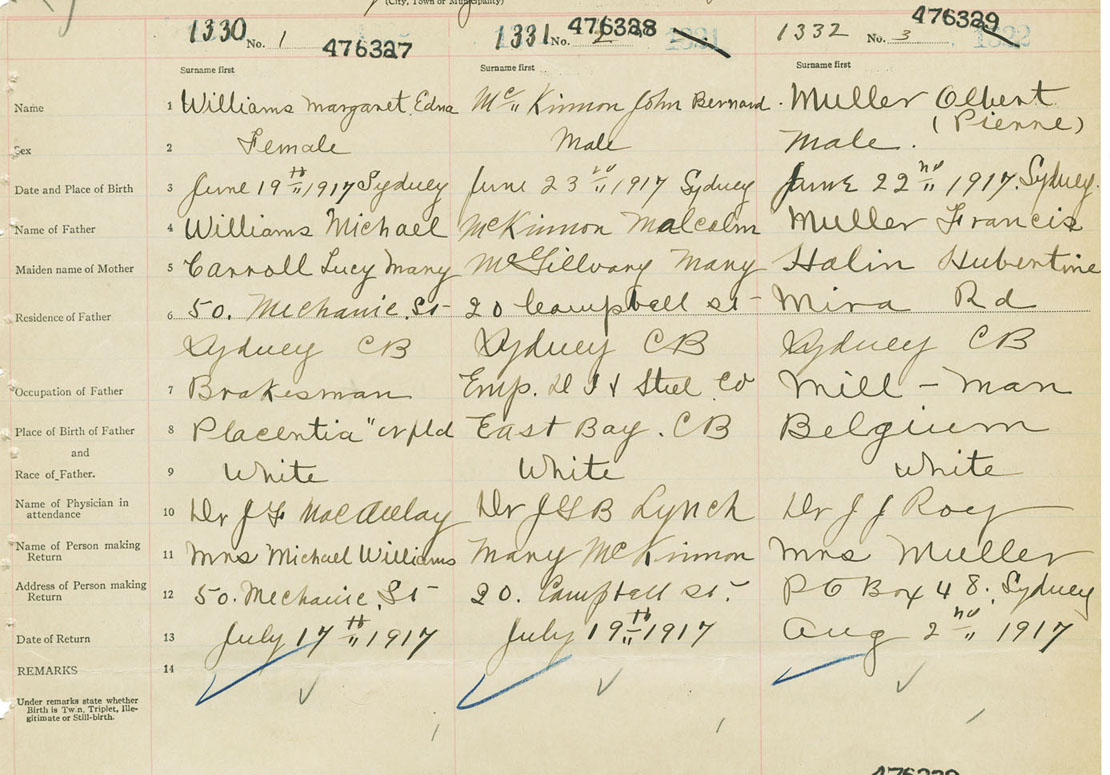 (City, Town or Municipality)
1330 No. 1 476327 1331 No. 2 476328 1332 No. 3 476329
Surname first Surname first Surname first
Name 1 Williams Margaret Edna McKinnon John Bernard Muller Olbert
(Pierre)
Sex 2 Female Male Male.
Date and Place of Birth 3 June 19th 1917 Sydney June 23rd 1917 Sydney June 22nd 1917. Sydney.
Name of Father 4 Williams Michael McKinnon Malcolm Muller Francis
Maiden name of Mother 5 Carroll Lucy Mary McGillvary Mary Halin Hubertine
Residence of Father 6 50. Mechanic St 20 Campbell St Mira Rd
Sydney CB Sydney CB Sydney CB
Occupation of Father 7 Brakesman Emp. D I & Steel Co Mill - man
Place of Birth of Father 8 Placentia Nfld East Bay. CB Belgium
and
Race of Father. 9 White White White
Name of Physician in
attendance 10 Dr J F MacAulay Dr J G B Lynch Dr J J Roy
Name of Person making
Return 11 Mrs Michael Williams Mary McKinnon Mrs Muller
Address of Person making
Return 12 50. Mechanic St 20. Campbell St. P O Box 48. Sydney
Date of Return 13 July 17th 1917 July 19th 1917 Aug 2nd 1917
REMARKS 14
Under remarks state whether
Birth is Twin, Triplet, Ille-
gitimate or Still-birth.